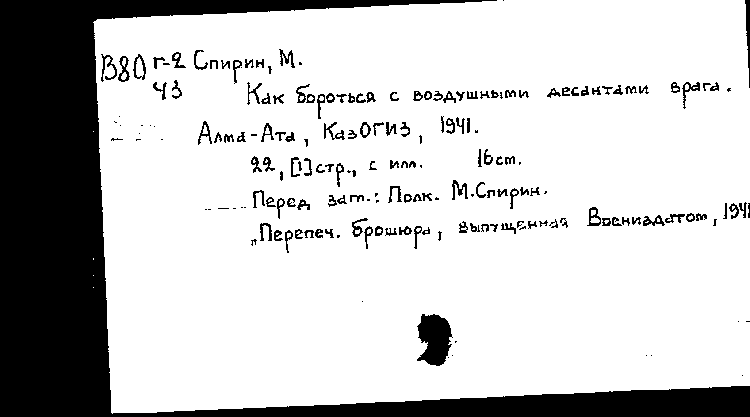 В80 г-2 Спирин, М.
43
Как бороться с воздушными десантами врага.
Алма-Ата, КазОГИЗ, 1941.
22, [1] стр., с илл. 16 cm.
Перед загл.: Полк. М. Спирин.
„Перепеч. брошюра, выпущенная Воениздатом, 1941